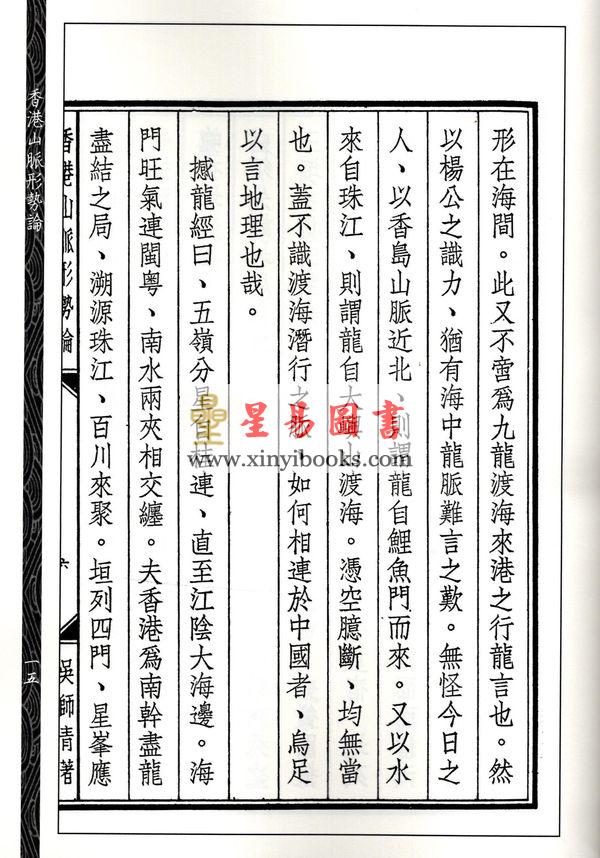 形在海間。此又不啻爲九龍渡海來港之行龍言也。然
以楊公之識力、猶有海中龍脈難言之歎。無怪今日之
人、以香島山脈近北、則謂龍自鯉魚門而來。又以水
來自珠江、則謂龍自大嶼山渡海。憑空臆斷、均無當
也。蓋不識渡海潛行之 、如何相連於中國者、烏足
以言地理也哉。
撼龍經曰、五嶺分星自桂連、直至江陰大海邊。海
門旺氣連閩粤、南水兩夾相交纏。夫香港爲南幹盡龍
盡結之局、溯源珠江、百川來聚。垣列四門、星峯應
香港山脈形勢論
六
吳師青著
香港山脈形勢論
一五
星易圖書
www.xinyibooks.com